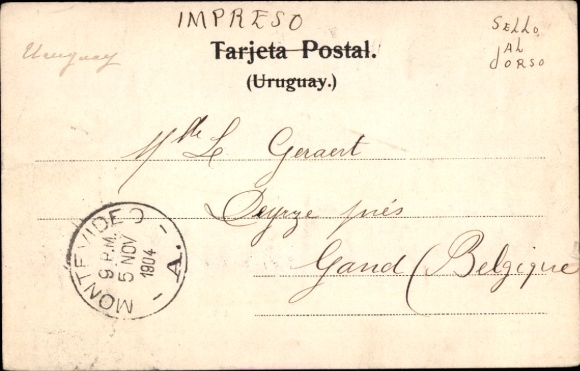 IMPRESO
Tarjeta Postal.
(Uruguay.)
Uruguay
SELLO
AL
DORSO
Mlle L Geraert
Deynze près
Gand (Belgique
MONTEVIDEO
9 P.M.
5 NOV
1904
- A. -